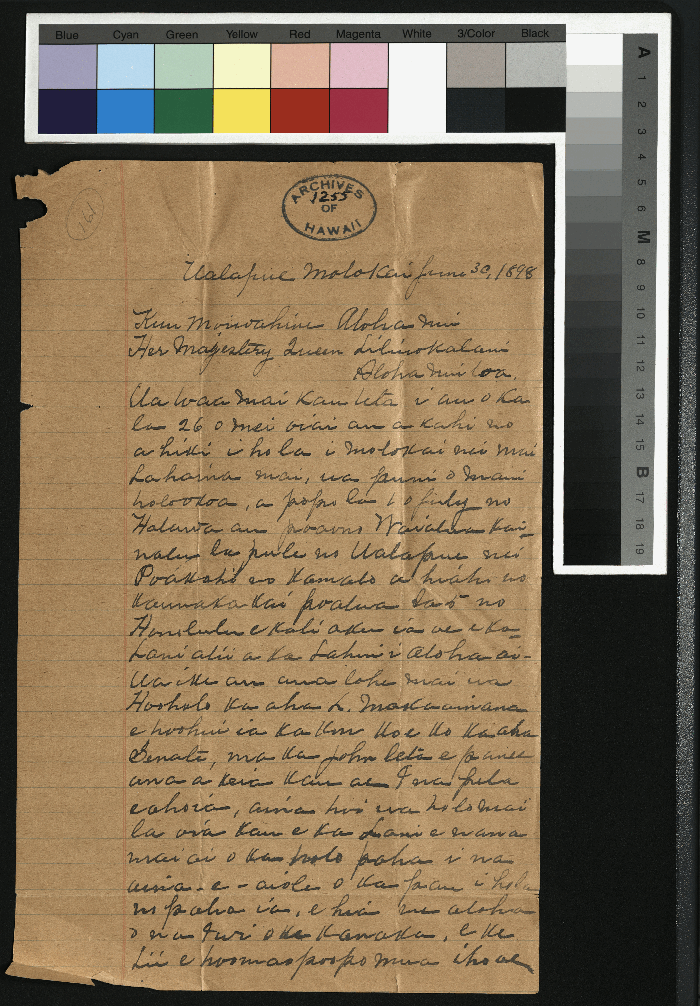 Blue Cyan Green Yellow Red Magenta White 3/Color Black
A 1 2 3 4 5 6 M 8 9 10 11 12 13 14 15 B 17 18 19
ARCHIVES
1255
OF
HAWAII
Ualapue Molokai June 30, 1898
Kuu Moiwahine Aloha nui
Her Majestery Queen Liliuokalani
Aloha nui loa.
Ua loaa mai kau leta i au o ka
la 26 o Mei oiai au a kahi no
a hiki i hola i Molokai nei mai
Lahaina mai, ua puni o Maui
holookoa, a popo la 1 o July no
Halawa au poaono Waialua Kai-
nalu la pule no Ualapue nei
Poakahi no Kamalo a hiahi no
Kaunakakai poalua la 5 no
Honolulu e kali aku ia oe e ka
Lani alii a ka Lahui i aloha ai-
Ua ike au ana lohe mai ua
Hooholo ka aha L. Makaainana
e hoohui ia ka koe ko ka aha
Senate, ma ka John leta e
ana a keia kau ae I na pela
eahoia, aina hoi ua holo mai
la oia kau e ka Lani e nana
mai ai o ka polo paha i na
aina - e - aiole o ka pau i hola
no paha ia, e hia ne aloha
o na Iwi o ke kanaka, e ke
Lii e hoomaopopo mua iho oe